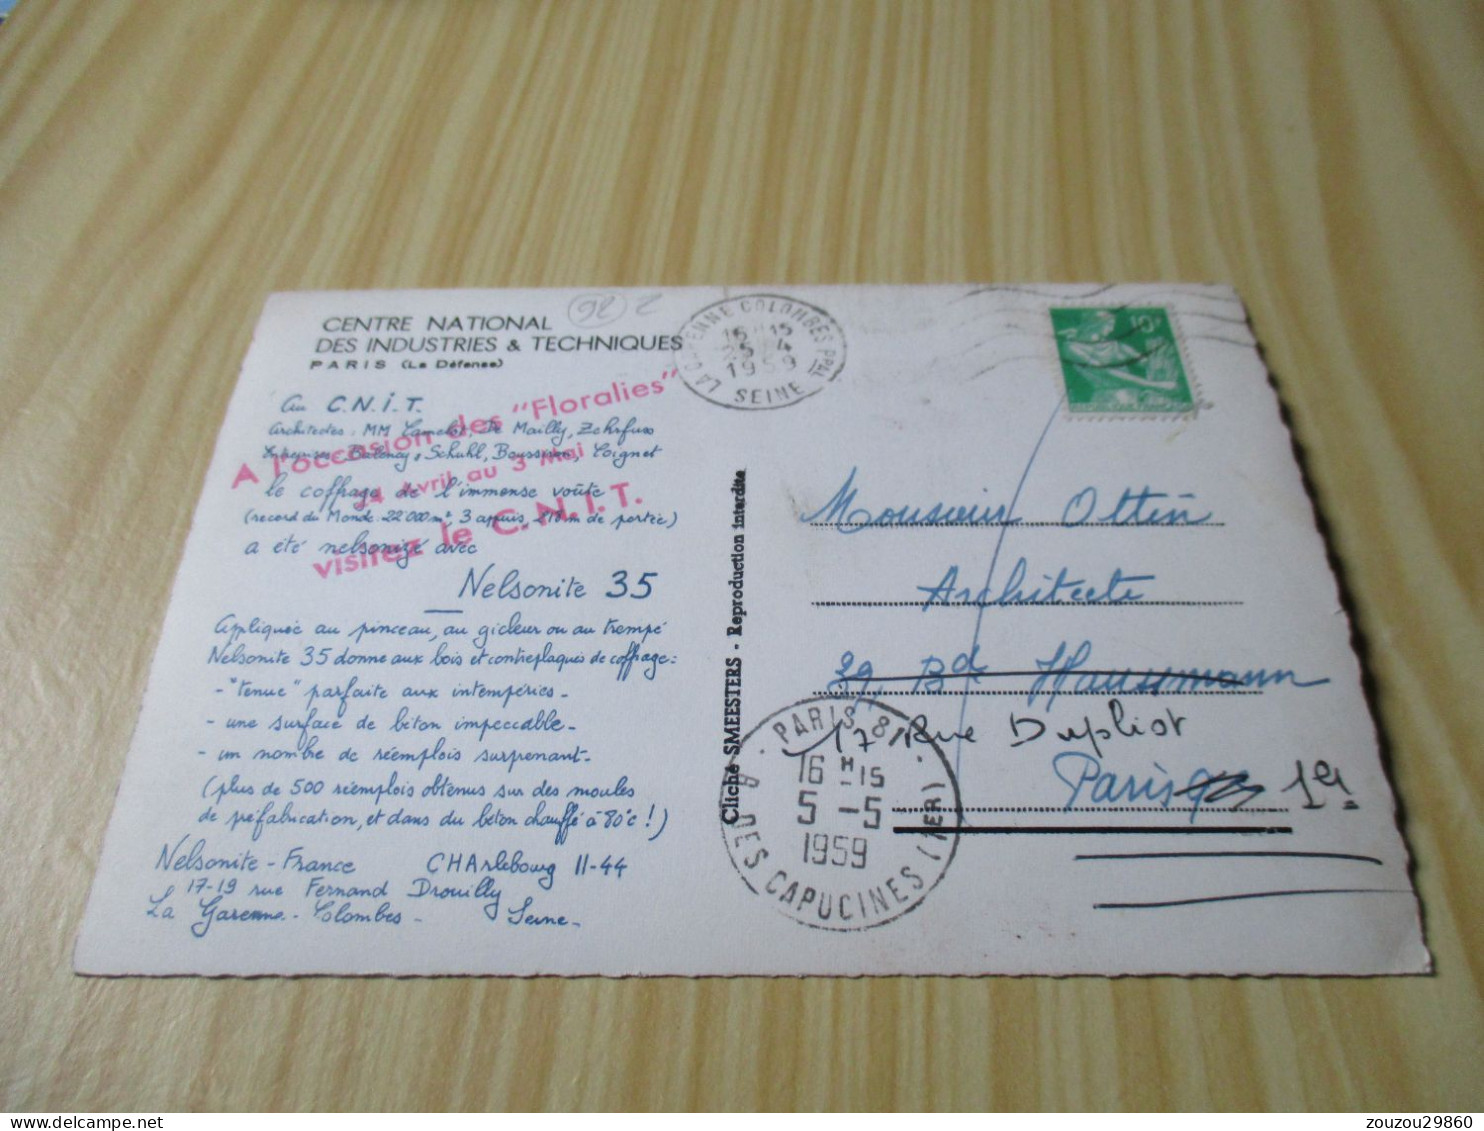 CENTRE NATIONAL
DES INDUSTRIES & TECHNIQUES
PARIS (La Défense)
Au C.N.I.T.
Architectes : MM Camelot, De Mailly, Zehrfuss
Entreprises : Balency & Schuhl, Boussiron, Coignet
le coffrage de l'immense voûte
(record du Monde 22 000 m², 3 appuis, 218 m de portée)
a été nelsonizé avec
Nelsonite 35
Appliquée au pinceau, au gicleur ou au trempé
Nelsonite 35 donne aux bois et contreplaqués de coffrage :
- "tenue" parfaite aux intempéries -
- une surface de béton impeccable -
- un nombre de réemplois surprenant -
(plus de 500 réemplois obtenus sur des moules
de préfabrication, et dans du béton chauffé à 80°c !)
Nelsonite - France CHArlebourg 11-44
17-19 rue Fernand Drouilly
La Garenne - Colombes - Seine -
A l'occasion des "Floralies"
24 Avril au 3 Mai
visitez le C.N.I.T.
Cliché SMEESTERS - Reproduction interdite
LA GARENNE COLOMBES PPAL
1959
SEINE
10F
Monsieur Ottin
Architecte
39, Bd Haussmann
17 Rue Duphot
Paris 1er
PARIS 81
16 H 15
5 - 5
1959
R. DES CAPUCINES (1ER)
zouzou29860